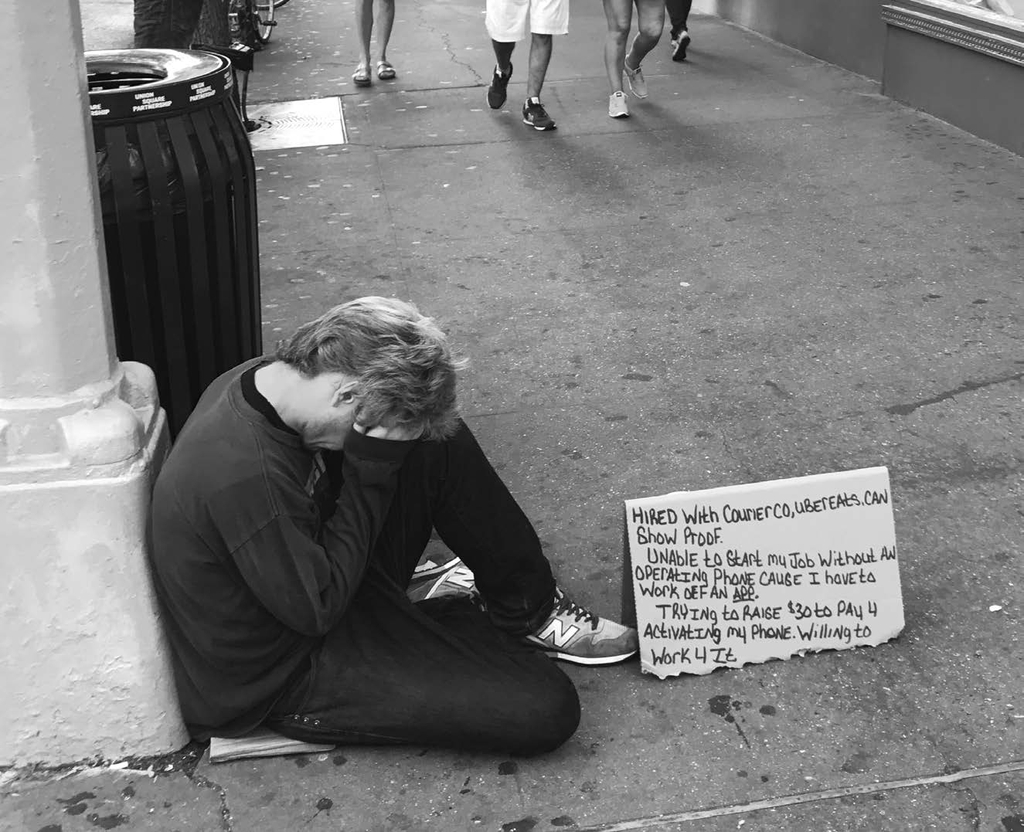 UNION
SQUARE
PARTNERSHIP
UNION
SQUARE
PARTNERSHIP
HIRED With CourierCO,UBEREATS.CAN
Show Proof.
UNABLE to Start my Job Without AN
OPERATING PHONE CAUSE I have to
Work OFF AN APP.
TRYING to RAISE $30 to PAY 4
Activating my Phone. Willing to
Work 4 It
N